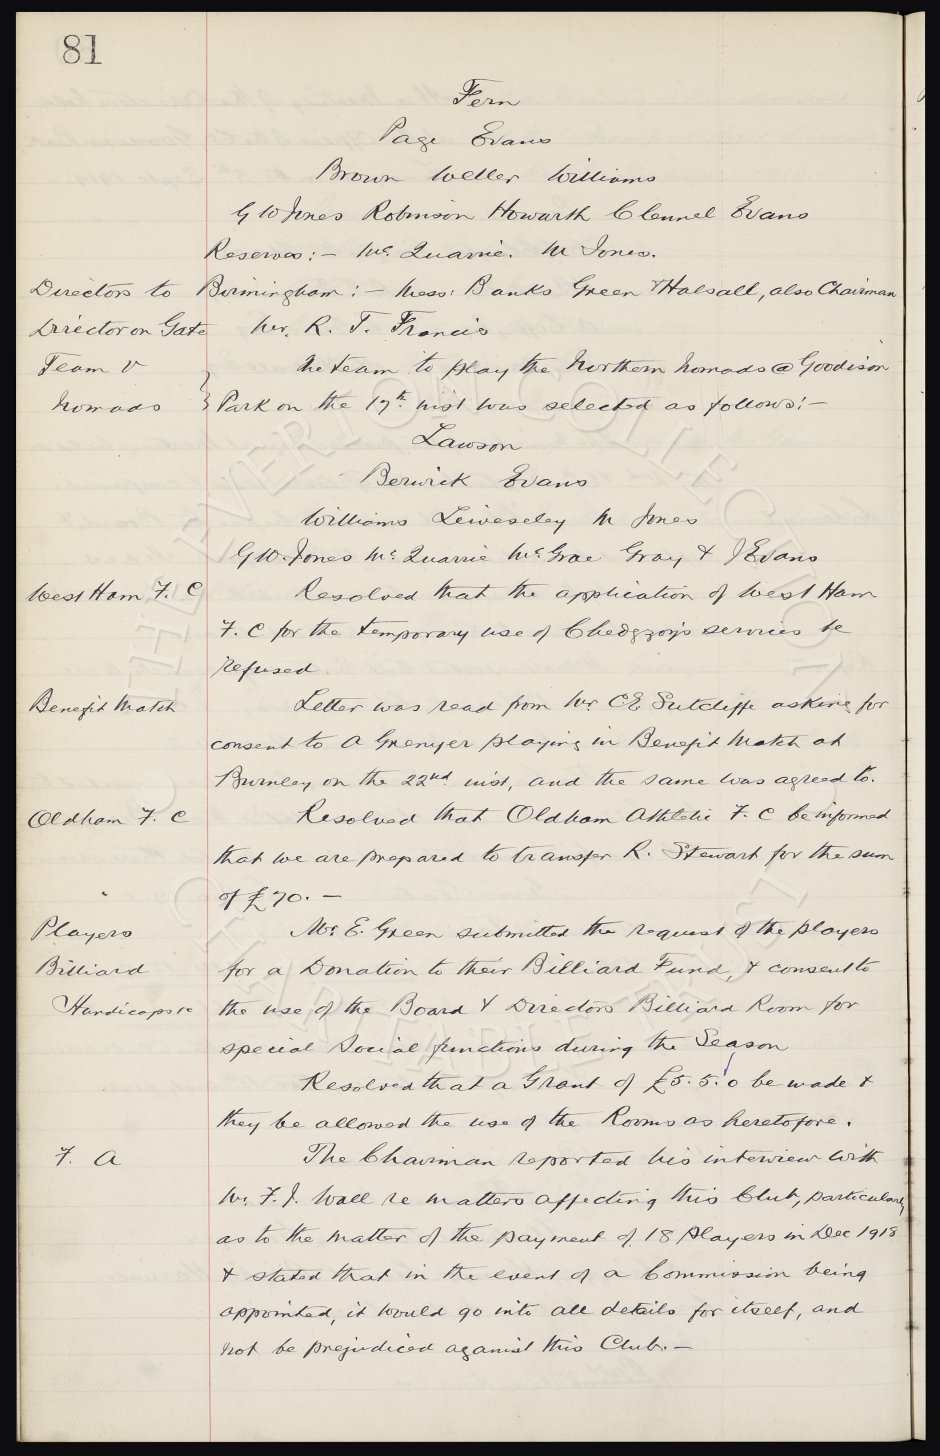 81
Fern
Page Evans
Brown Weller Williams
G W Jones Robinson Howarth Clennel Evans
Reserves:- Mc Quarrie. M Jones.
Directors to Birmingham:- Mess: Banks Green & Halsall, also Chairman
Director on Gate Mr. R. T. Francis
Team v The team to play the Northern Nomads @ Goodison
Nomads } Park on the 17th inst was selected as follows:-
Lawson
Berwick Evans
Williams Leiveseley M Jones
G W. Jones Mc Quarrie Mc Grae Gray & J Evans
West Ham F. C Resolved that the application of West Ham
F. C for the temporary use of Chedgzoy's services be
refused.
Benefit Match Letter was read from Mr C E Sutcliffe asking for
consent to A Grenyer playing in Benefit Match at
Burnley on the 22nd inst, and the same was agreed to.
Oldham F. C Resolved that Oldham Athletic F. C be informed
that we are prepared to transfer R. Stewart for the sum
" of £70. -
Players Mr E. Green submitted the request of the players
Billiard for a Donation to their Billiard Fund, & consent to
Handicaps re the use of the Board & Directors Billiard Room for
special Social functions during the Season
Resolved that a Grant of £5. 5. 0 be made &
they be allowed the use of the Rooms as heretofore.
F. A The Chairman reported his interview with
Mr. F. J. Wall re matters affecting this Club, particularly
as to the matter of the payment of 18 players in Dec 1918
& stated that in the event of a Commission being
appointed, it would go into all details for itself, and
not be prejudiced against this Club. -
THE EVERTON COLLECTION
CHARITABLE TRUST